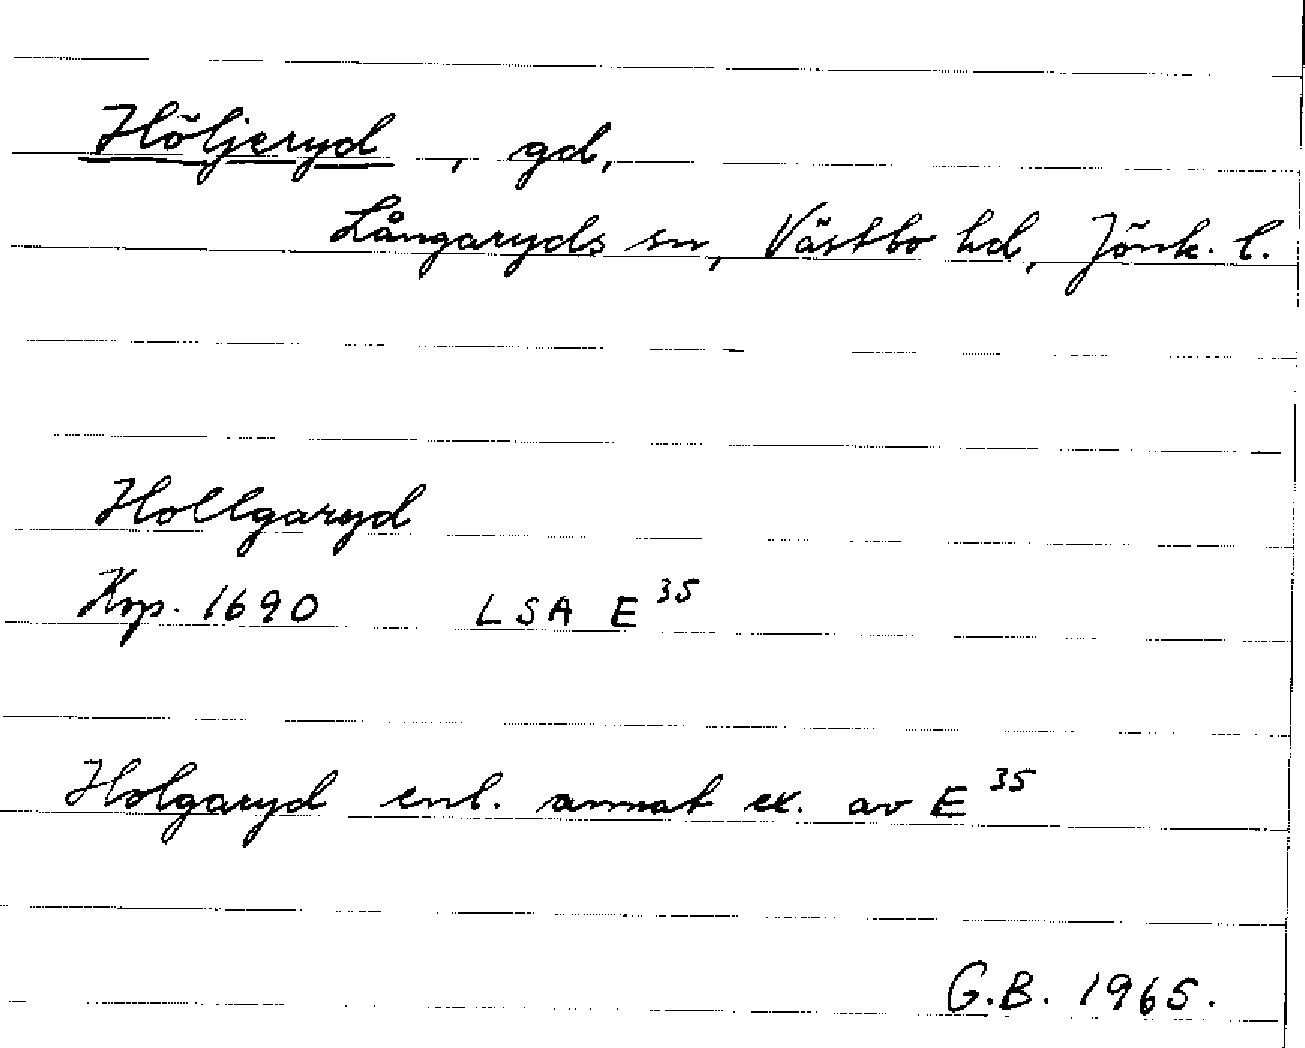 Höljeryd, gd,
Långaryds sn, Västbo hd, Jönk. l.
Hollgaryd
Kop. 1690 LSA E 35
Holgaryd enl. annat ex. av E 35
G.B. 1965.